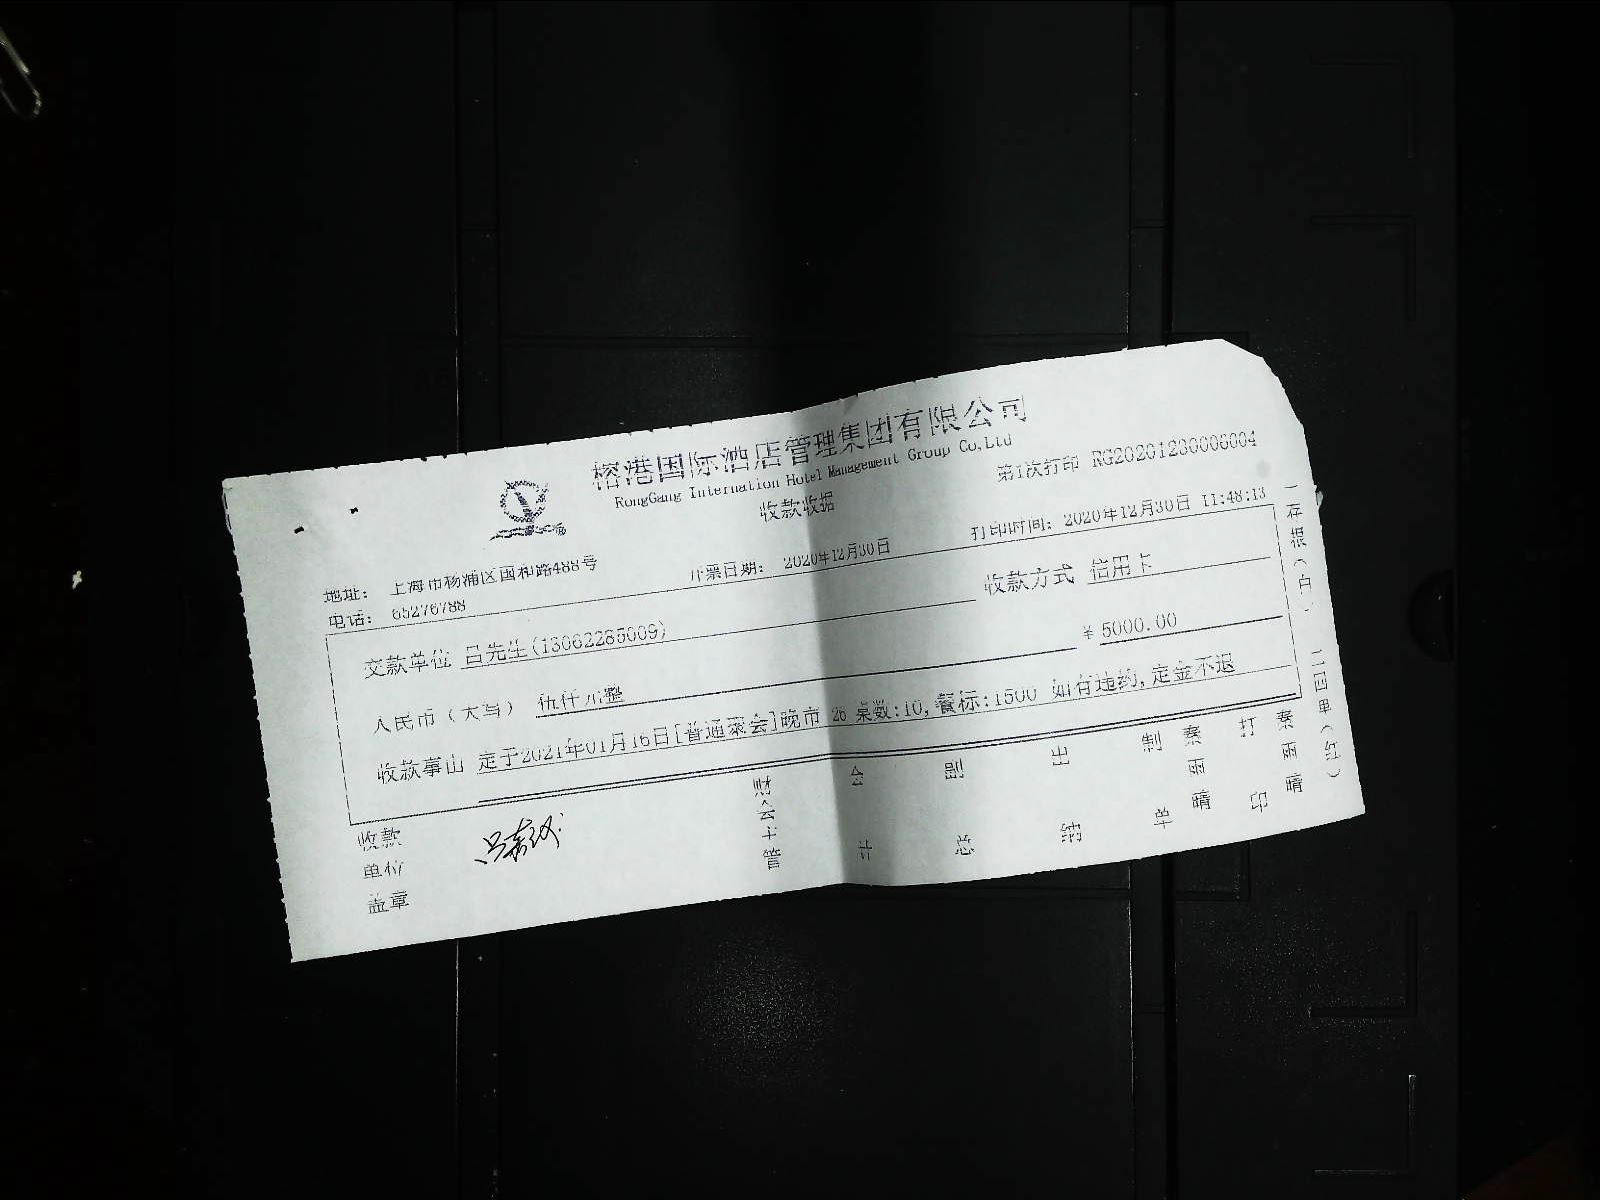 榕港国际酒店管理集团有限公司
RongGang Internation Hotel Management Group Co,Ltd
收款收据
第1次打印 RG20201230006004
地址： 上海市杨浦区国和路488号
开票日期： 2020年12月30日
打印时间： 2020年12月30日 11:48:13
电话： 65276788
交款单位 吕先生(13062285009)
收款方式 信用卡
人民币（大写） 伍仟元整
￥ 5000.00
收款事由 定于2021年01月16日[普通聚会]晚市 26 桌数:10,餐标:1500 如有违约,定金不退
收款单位盖章
财会主管
会计
副总
出纳
制单
秦雨晴
打印
秦雨晴
一存根（白） 二回单（红）